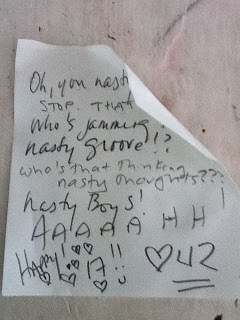 Oh, you nasty
STOP. THAT
Who's jamming
nasty groove!?
who's that thinking
nasty thoughts???
nasty Boys!
AAAAA HH!
Happy! 17!!
♡U2